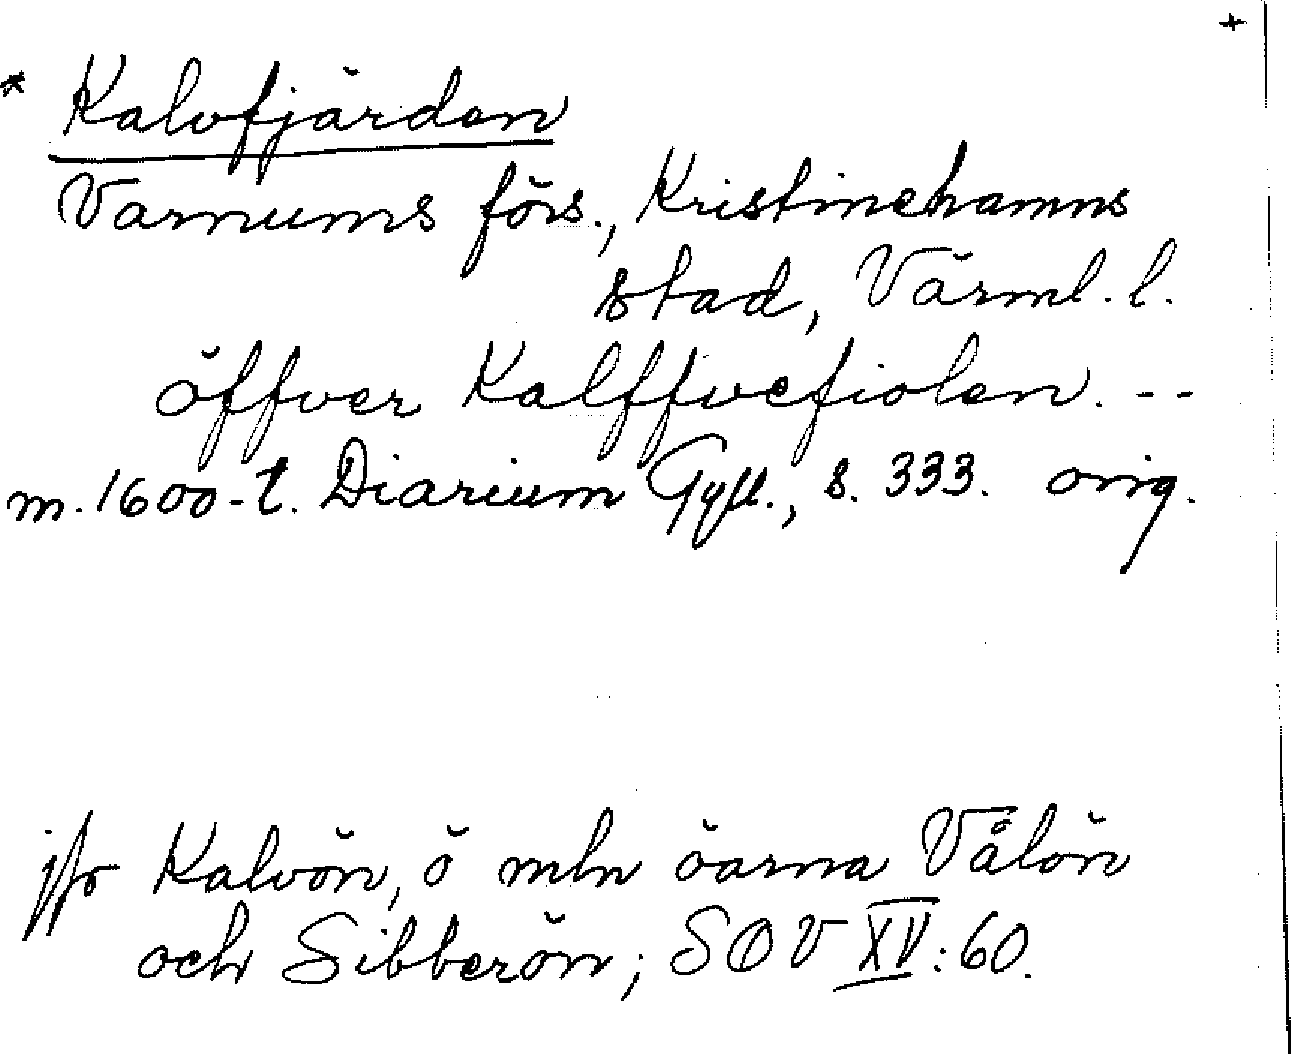 +
* Kalvfjärden
Varnums förs., Kristinehamns
stad, Värml. l.
öffver Kalffvefiolen. --
m. 1600-t. Diarium Gyll., s. 333. orig.
jfr Kalvön, ö mln öarna Vålön
och Sibberön; SOV XV:60.